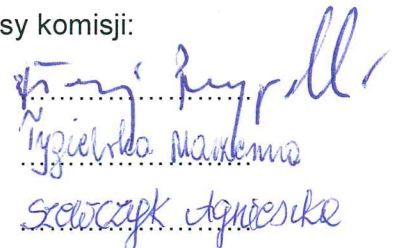 sy komisji:
Tygielska Marzenna
Szewczyk Agnieszka